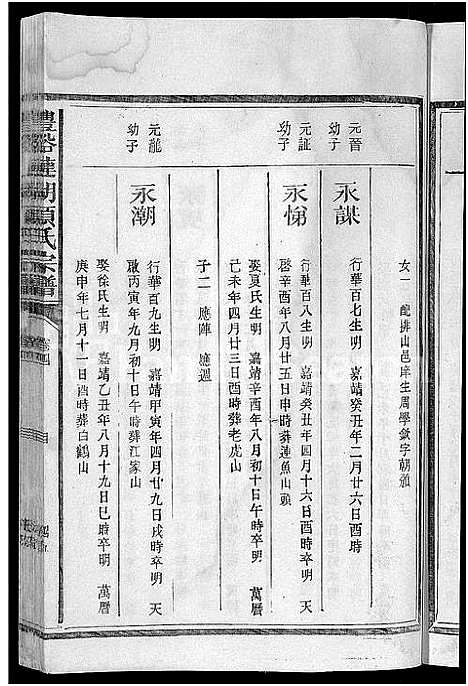 女一 配排山邑庠生周學敘字朝雅
元晉幼子
永謀
行華百七生明 嘉靖癸丑年二月廿六日酉時
元証幼子
永悌
行華百八生明 嘉靖癸丑年四月十六日酉時卒明 天
啓辛酉年八月廿五日申時葬連魚山頭
娶夏氏生明 嘉靖辛酉年八月初十日午時卒明 萬曆
己未年四月廿三日酉時葬老虎山
子二 應陣 應遇
元龍幼子
永潮
行華百九生明 嘉靖甲寅年四月廿九日戌時卒明 天
啟丙寅年九月初十日午時葬江家山
娶徐氏生明 嘉靖乙丑年八月十九日巳時卒明 萬曆
庚申年七月十一日酉時葬白鶴山
豐谿蓮湖項氏宗譜